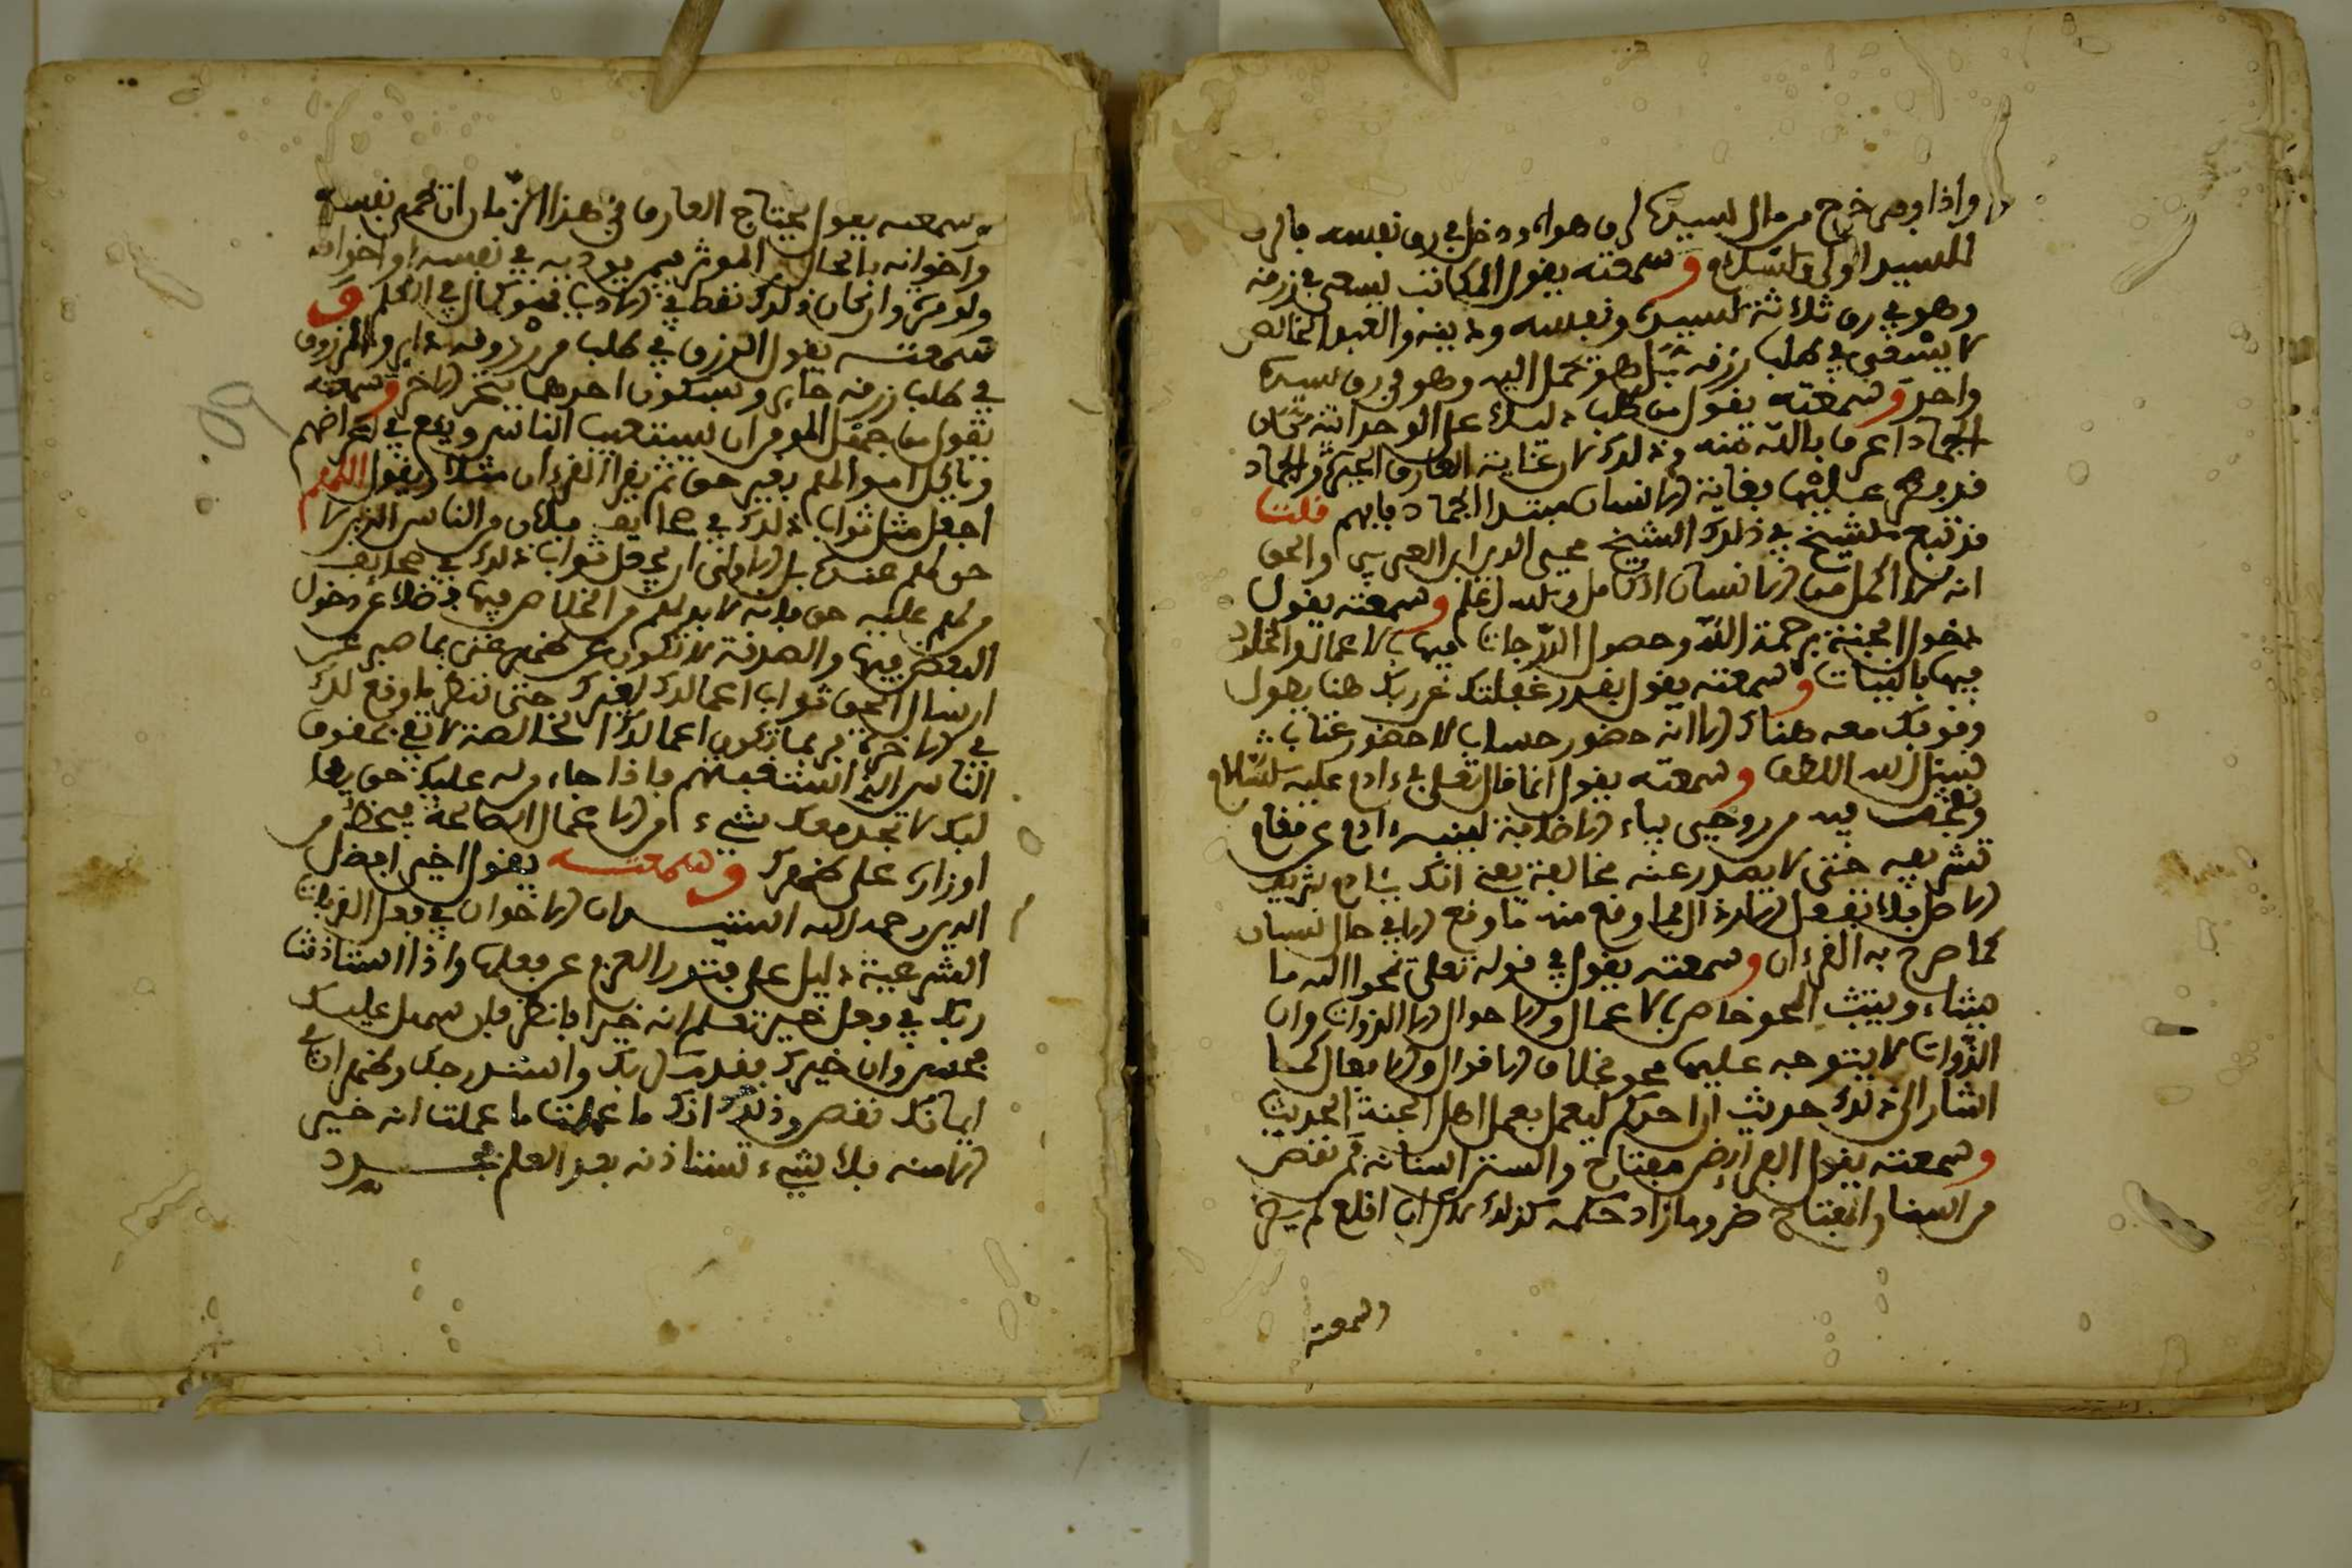 واذا وفى خرج من مال لسيده لرق هواه ودخل في رق نفسه فالرق
للسيد اولى والسلام وسمعته يقول المكاتب يسعى في رزقه
وهو في رق ثلاثة لسيده ونفسه ودينه والعبد الخالص
لا يسعى في طلب رزقه بل هو يحمل اليه وهو في رق سيده
واحد وسمعته يقول من طلب دليلا على الوحدانية كان
الجماد اعرف بالله منه وذلك لان غاية العارف الحيرة والجماد
قد فطر عليها بغاية الانسان مبتدا الجماد فافهم قلت
قد تبع الشيخ في ذلك الشيخ محيي الدين ابن العربي والحق
انه لا اكمل من الانسان الكامل والله اعلم وسمعته يقول
دخول الجنة برحمة الله وحصول الدرجات فيها بالاعمال والخلود
فيها بالنيات وسمعته يقول بقدر غفلتك عن ربك هنا يطول
وقوفك معه هناك الا انه حضور حساب لا حضور عتاب
نسئل الله اللطف وسمعته يقول انما قال تعلى في ءادم عليه السلام
ونفخت فيه من روحي بياء الاضافة لينبه ءادم على مقام
تشريفه حتى لا يصدر عنه مخالفة يعني انك يا ءادم شريف
الاصل فلا تفعل الا رذال فما وقع منه ما وقع الا في حال نسيان
كما صرح به القرءان وسمعته يقول في قوله تعلى يمحوا الله ما
يشاء ويثبت المحو خاص بالاعمال والاحوال لا الذوات وان
الذوات لا يتوجه عليها محو بخلاف الاقوال والافعال كما
اشار الى ذلك حديث ان احدكم ليعمل بعمل اهل الجنة الحديث
وسمعته يقول الفرايض مفتاح والسنن اسنانه فمن نقص
من اسنان المفتاح ضر وما زاد حكمه كذلك لم يفتح
وسمعته
وسمعته يقول يحتاج العارف في هذا الزمان ان يحمي نفسه
واخوانه بالحال الموثر فيمن يوذيه في نفسه او اخوانه
ولو مرة وان كان ذلك نقصا في الادب فهو كمال في العلم و
سمعته يقول الرزق في طلب مرزوقه داير والمرزوق
في طلب رزقه حاير وبسكون احدهما يتحرك الاخر وسمعته
يقول من جهل المومن ان يستغيب الناس ويقع في اعراضهم
وياكل اموالهم بغير حق ثم يقرا القرءان مثلا ويقول اللهم
اجعل مثل ثواب ذلك في صحايف فلان من الناس الذين لا
حق لهم عنده بل الاولى ان يجعل ثواب ذلك في صحايف
من لهم عليه حق فانه لا بد لهم من الخلاص فيها فضلا عن دخول
البعض فيها والصدقة لا تكون عن ظهر غنى فاصبر عن
ارسال الحق ثواب اعمالك لغيرك حتى تنظر ما وقع لك
في الاخرة فربما تكون اعمالك الخالصة لا تفي بحقوق
الناس الذين استغبتهم فاذا جاء من له عليك حق يطا
لبك لا تجد معك شيء من الاعمال الصالحة فيحط من
اوزاره على ظهرك وسمعته يقول اخي افضل
الدين رحمه الله استيذان الاخوان في فعل القربات
الشرعية دليل على فتور العزم عن فعلها واذا استاذنت
ربك في فعل خير تعلم انه خير فانظر فان سهل عليك
فخير وان خيرك فقد مكر بك واستدرجك وظهر ان
ايمانك نقص وذلك انك ما عملت ما عملت انه خير
الا منه فلا شيء تستاذنه بعد العلم فجرد